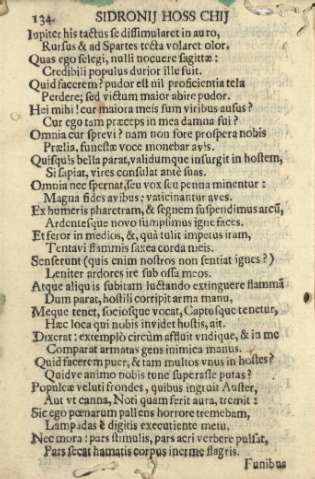 134. SIDRONIJ HOSS CHIJ
Iupiter his tactus se dissimularet in auro,
Rursus & ad Spartes tecta volaret olor.
Quas ego selegi, nulli nocuere sagittæ:
Credibili populus durior ille fuit.
Quid facerem? pudor est nil proficientia tela
Perdere; sed victum maior abire pudor.
Hei mihi! cur maiora meis sum viribus ausus?
Cur ego tam præceps in mea damna fui?
Omnia cur sprevi? nam non fore prospera nobis
Prælia, funestæ voce monebar avis.
Quisquis bella parat, validumque insurgit in hostem,
Si sapiat, vires consulat antè suas.
Omnia nec spernat, seu vox seu penna minentur:
Magna fides avibus; vaticinantur aves.
Ex humeris pharetram, & segnem suspendimus arcũ,
Ardentesque novo sumpsimus igne faces.
Et feror in medios, &, quà tulit impetus iram,
Tentavi flammis saxea corda meis.
Senserunt (quis enim nostros non sentiat ignes?)
Leniter ardores ire sub ossa meos.
Atque aliquis subitam luctando extinguere flammã
Dum parat, hostili corripit arma manu,
Meque tenet, sociosque vocat, Captosque tenetur,
Hæc loca qui nobis invidet hostis, ait.
Dixerat: extemplò circùm affluit vndique, & in me
Comparat armatas gens inimica manus.
Quid facerem puer, & tam multos vnus in hostes?
Quidve animo nobis tunc superasse putas?
Populeæ veluti frondes, quibus ingruit Auster,
Aut vt canna, Noti quam ferit aura, tremit:
Sic ego pœnarum pallens horrore tremebam,
Lampadas è digitis executiente metu.
Nec mora: pars stimulis, pars acri verbere pulsat,
Pars secat hamatis corpus inerme flagris.
Funibus